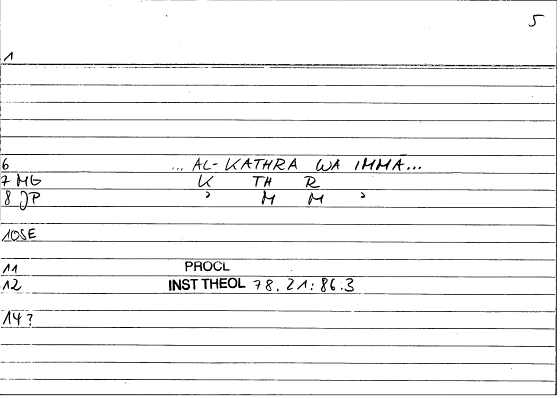 5
1
6 ... AL-KATHRA WA IMMĀ...
7 MG K TH R
8 JP ' M M '
10SE
11 PROCL
12 INST THEOL 78.21:86.3
14?